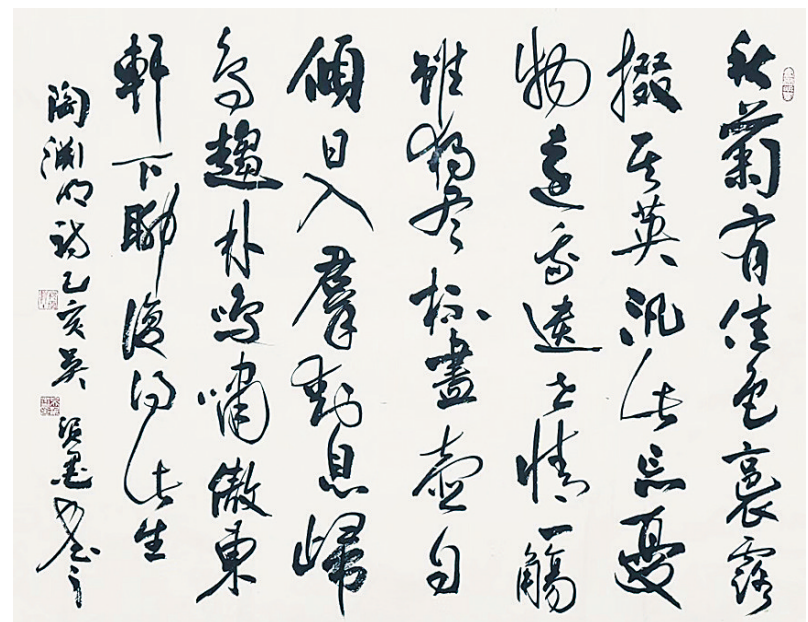 秋菊有佳色裛露
掇其英汎此忘憂
物遠我遺世情一觴
雖獨杯盡壺自
傾日入羣動息歸
鳥趨林鳴嘯傲東
軒下聊復得此生
陶淵明詩乙亥吳